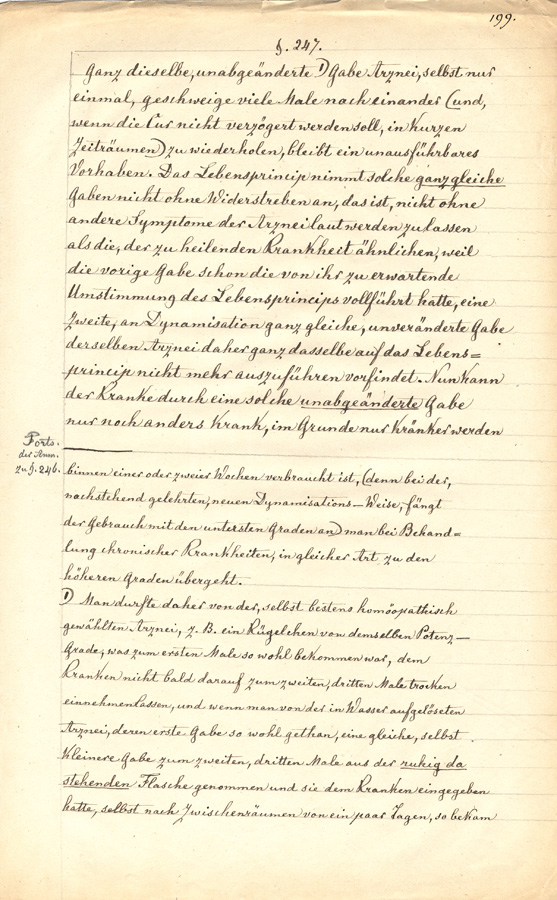 199.
§. 247.
Ganz dieselbe, unabgeänderte 1) Gabe Arznei, selbst nur
einmal, geschweige viele Male nach einander (und,
wenn die Cur nicht verzögert werden soll, in kurzen
Zeiträumen) zu wiederholen, bleibt ein unausführbares
Vorhaben. Das Lebensprincip nimmt solche ganz gleiche
Gaben nicht ohne Widerstreben an, das ist, nicht ohne
andere Symptome der Arznei laut werden zu lassen
als die, der zu heilenden Krankheit ähnlichen, weil
die vorige Gabe schon die von ihr zu erwartende
Umstimmung des Lebensprincips vollführt hatte, eine
zweite, an Dynamisation ganz gleiche, unveränderte Gabe
derselben Arznei daher ganz dasselbe auf das Lebens=
princip nicht mehr auszuführen vorfindet. Nun kann
der Kranke durch eine solche unabgeänderte Gabe
nur noch anders krank, im Grunde nur kränker werden
Forts.
der Anm.
zu §. 246.
binnen einer oder zweier Wochen verbraucht ist, (denn bei der,
nachstehend gelehrten, neuen Dynamisations-Weise, fängt
der Gebrauch mit den untersten Graden an) man bei Behand=
lung chronischer Krankheiten, in gleicher Art zu den
höheren Graden übergeht.
1) Man durfte daher von der, selbst bestens homöopathisch
gewählten Arznei, z. B. ein Kügelchen von demselben Potenz-
Grade, was zum ersten Male so wohl bekommen war, dem
Kranken nicht bald darauf zum zweiten, dritten Male trocken
einnehmen lassen, und wenn man von der in Wasser aufgelöseten
Arznei, deren erste Gabe so wohl gethan, eine gleiche, selbst
kleinere Gabe zum zweiten, dritten Male aus der ruhig da
stehenden Flasche genommen und sie dem Kranken eingegeben
hatte, selbst nach Zwischenräumen von ein paar Tagen, so bekam